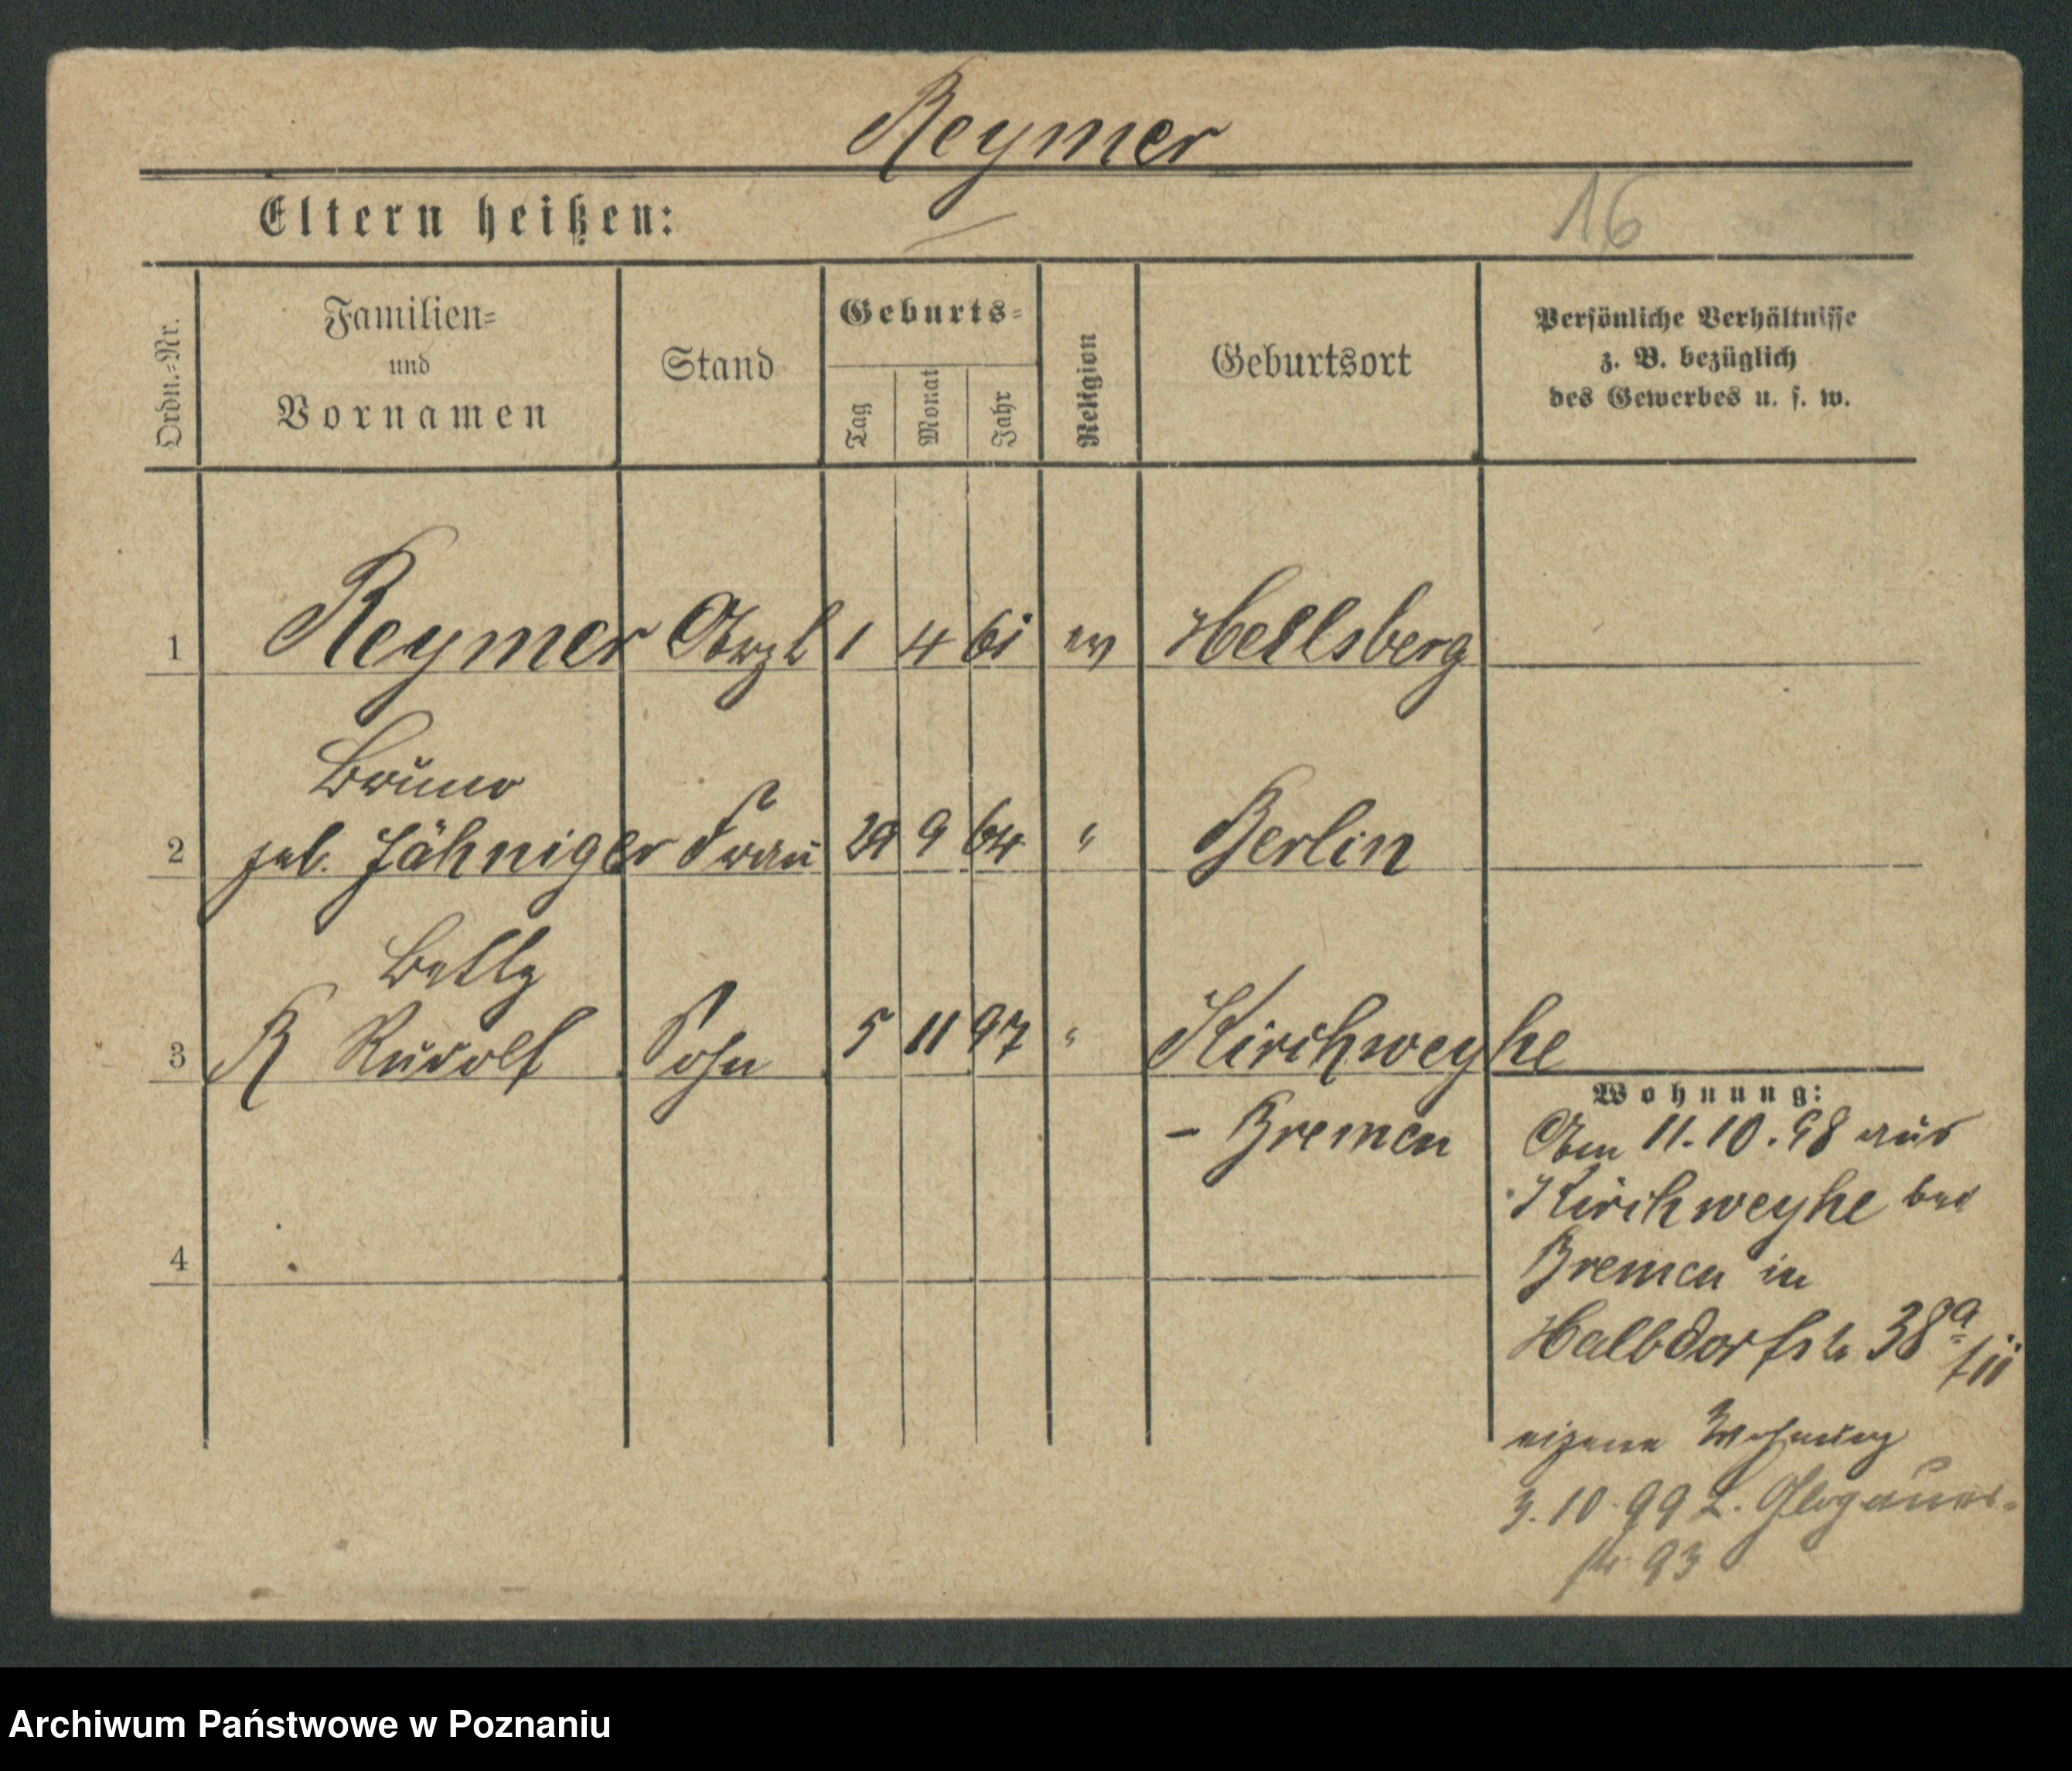 Reymer
Eltern heißen: —
16
Ordn.-Nr.
Familien-
und
Vornamen
Stand
Geburts-
Tag
Monat
Jahr
Religion
Geburtsort
Persönliche Verhältnisse
z. B. bezüglich
des Gewerbes u. s. w.
1 Reymer Arzt 1 4 61 ev Heilsberg
Bruno
2 geb. Jähniger Frau 29 9 64 " Berlin
Betty
3 R Rudolf Sohn 5 11 97 " Kirchweyhe
- Bremen
4
Wohnung:
Am 11.10.98 aus
Kirchweyhe bei
Bremen in
Halbdorfstr 38a
eigene Wohnung
3.10.99 Glogauer-
str. 93
Archiwum Państwowe w Poznaniu